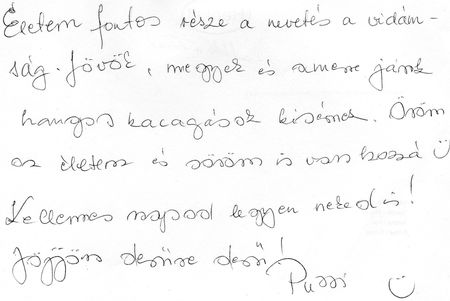 Életem fontos része a nevetés a vidám-
ság. Jövök, megyek és amerre járok
hangos kacagások kísérnek. Öröm
az életem és söröm is van hozzá ☺
Kellemes napod legyen neked is!
Jöjjön derűre derű!
Pussi ☺